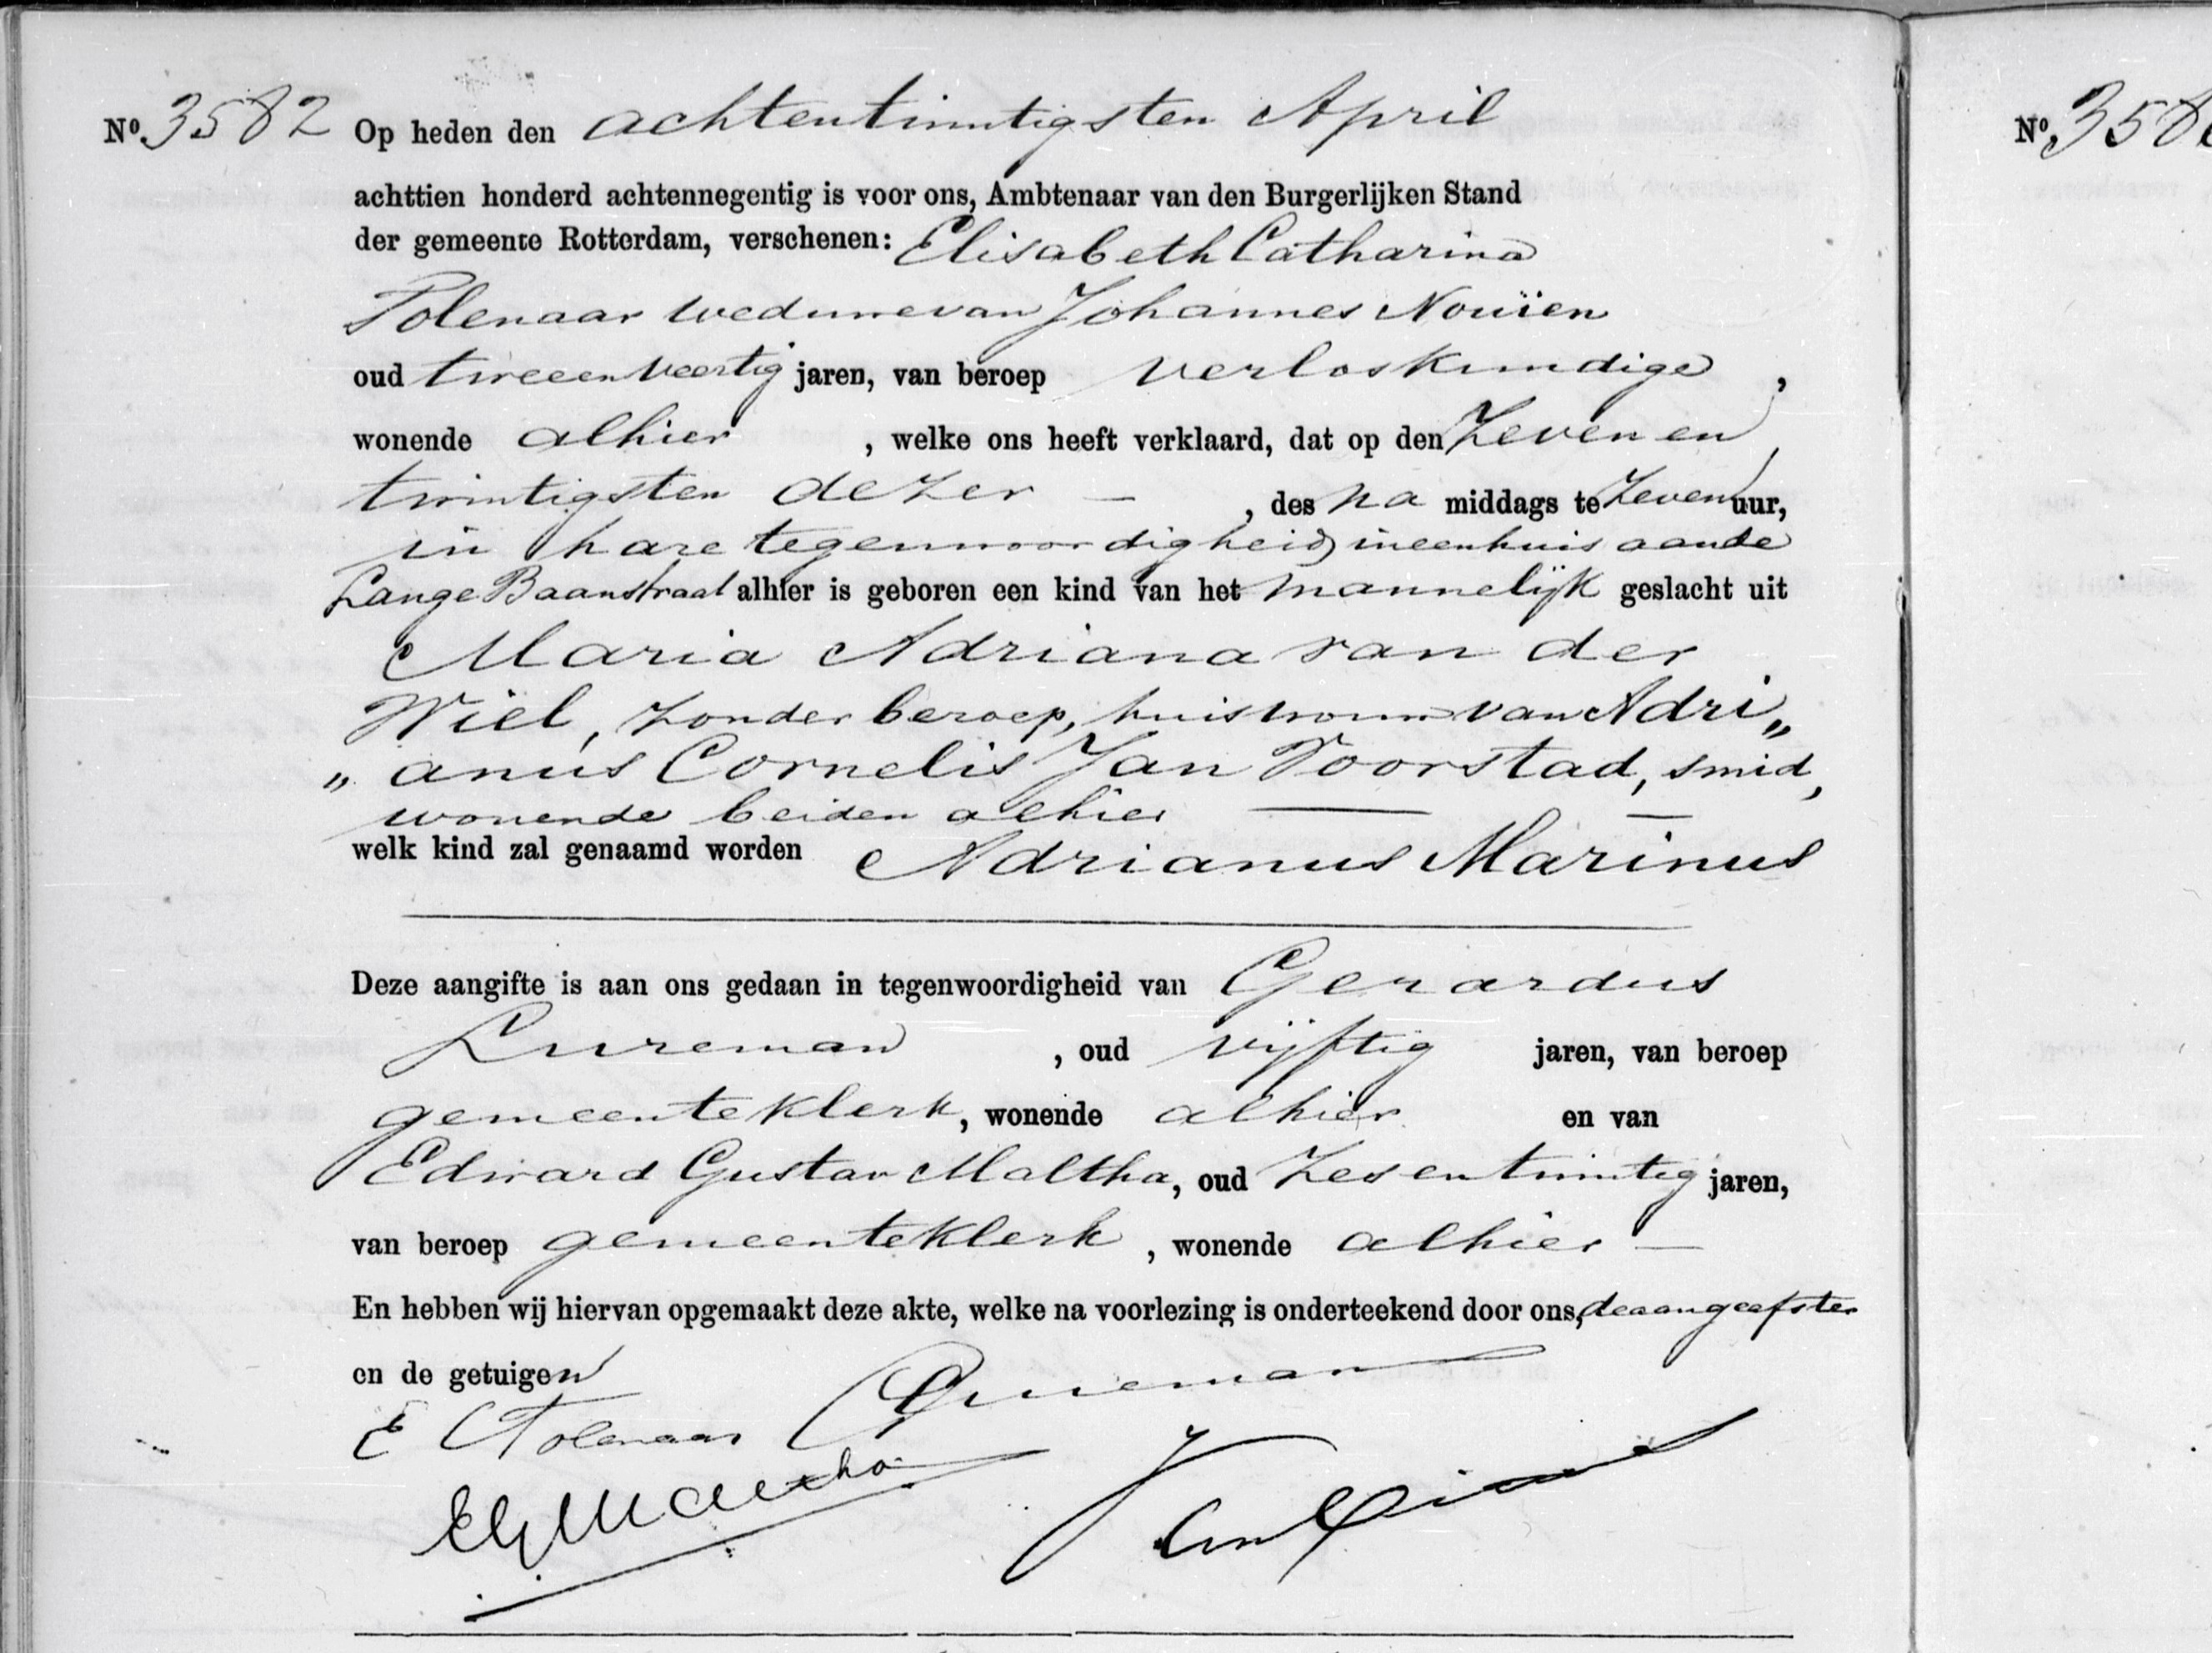 No. 3582 Op heden den achtentwintigsten April
achttien honderd achtennegentig is voor ons, Ambtenaar van den Burgerlijken Stand
der gemeente Rotterdam, verschenen: Elisabeth Catharina
Tolenaar weduwe van Johannes Nouïen
oud tweeenveertig jaren, van beroep verloskundige,
wonende alhier, welke ons heeft verklaard, dat op den Zeven en
twintigsten dezer —, des na middags te Zeven uur,
in hare tegenwoordigheid, in een huis aan de
Lange Baanstraat alhier is geboren een kind van het mannelijk geslacht uit
Maria Adriana van der
Wiel, zonder beroep, huisvrouw van Adri„
„anus Cornelis Jan Voorstad, smid,
wonende beiden alhier —
welk kind zal genaamd worden Adrianus Marinus
Deze aangifte is aan ons gedaan in tegenwoordigheid van Gerardus
Lureman, oud vijftig jaren, van beroep
gemeenteklerk, wonende alhier en van
Edward Gustav Maltha, oud Zesentwintig jaren,
van beroep gemeenteklerk, wonende alhier —
En hebben wij hiervan opgemaakt deze akte, welke na voorlezing is onderteekend door ons, de aangeefster
en de getuigen
E C Tolenaar GLureman
EGMaltha
No. 358